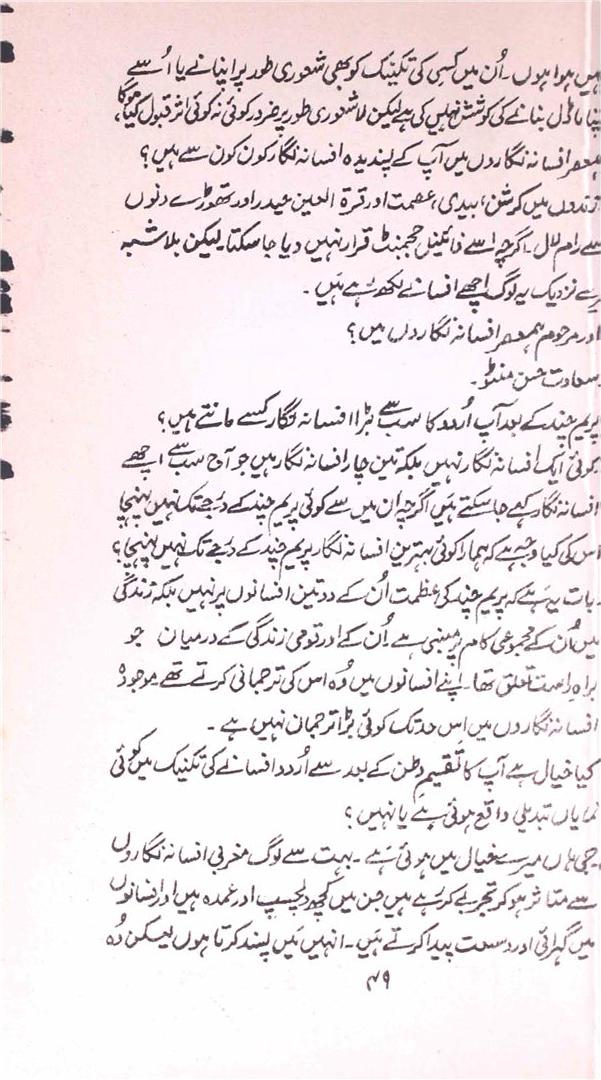 نہیں ہوا ہوں۔ اُن میں کسی کی تکنیک کو بھی شعوری طور پر اپنانے یا اُسے
اپنا ماڈل بنانے کی کوشش نہیں کی ہے لیکن لا شعوری طور پر ضرور کوئی نہ کوئی اثر قبول کیا ہوگا،
ہمعصر افسانہ نگاروں میں آپ کے پسندیدہ افسانہ نگار کون کون سے ہیں؟
زندوں میں کرشن، بیدی، عصمت اور قرۃ العین حیدر اور تھوڑے دنوں
سے رام لال۔ اگرچہ اسے فائنیل ججمنٹ قرار نہیں دیا جا سکتا لیکن بلا شبہ
میرے نزدیک یہ لوگ اچھے افسانے لکھ رہے ہیں۔
اور مرحوم ہمعصر افسانہ نگاروں میں؟
سعادت حسن منٹو۔
پریم چند کے بعد آپ اُردو کا سب سے بڑا افسانہ نگار کسے مانتے ہیں؟
کوئی ایک افسانہ نگار نہیں بلکہ تین چار افسانہ نگار ہیں جو آج سب سے اچھے
افسانہ نگار کہے جا سکتے ہیں اگرچہ ان میں سے کوئی پریم چند کے درجے تک نہیں پہنچا
اس کی کیا وجہ ہے کہ ہمارا کوئی بہترین افسانہ نگار پریم چند کے درجے تک نہیں پہنچا؟
بات یہ ہے کہ پریم چند کی عظمت اُن کے دو تین افسانوں پر نہیں بلکہ زندگی
میں اُن کے مجموعی کام پر مبنی ہے۔ اُن کے اور قومی زندگی کے درمیان جو
براہِ راست تعلق تھا۔ اپنے افسانوں میں وُہ اس کی ترجمانی کرتے تھے۔ موجودہ
افسانہ نگاروں میں اِس حد تک کوئی بڑا ترجمان نہیں ہے۔
کیا خیال ہے آپ کا تقسیمِ وطن کے بعد سے اُردو افسانے کی تکنیک میں کوئی
نمایاں تبدیلی واقع ہوئی ہے یا نہیں؟
جی ہاں میرے خیال میں ہوئی ہے۔ بہت سے لوگ مغربی افسانہ نگاروں
سے متاثر ہو کر تجربے کر رہے ہیں جن میں کچھ دلچسپ اور عمدہ ہیں اور افسانوں
میں گہرائی اور وسعت پیدا کرتے ہیں۔ انہیں میں پسند کرتا ہوں لیکن وُہ
۴۹